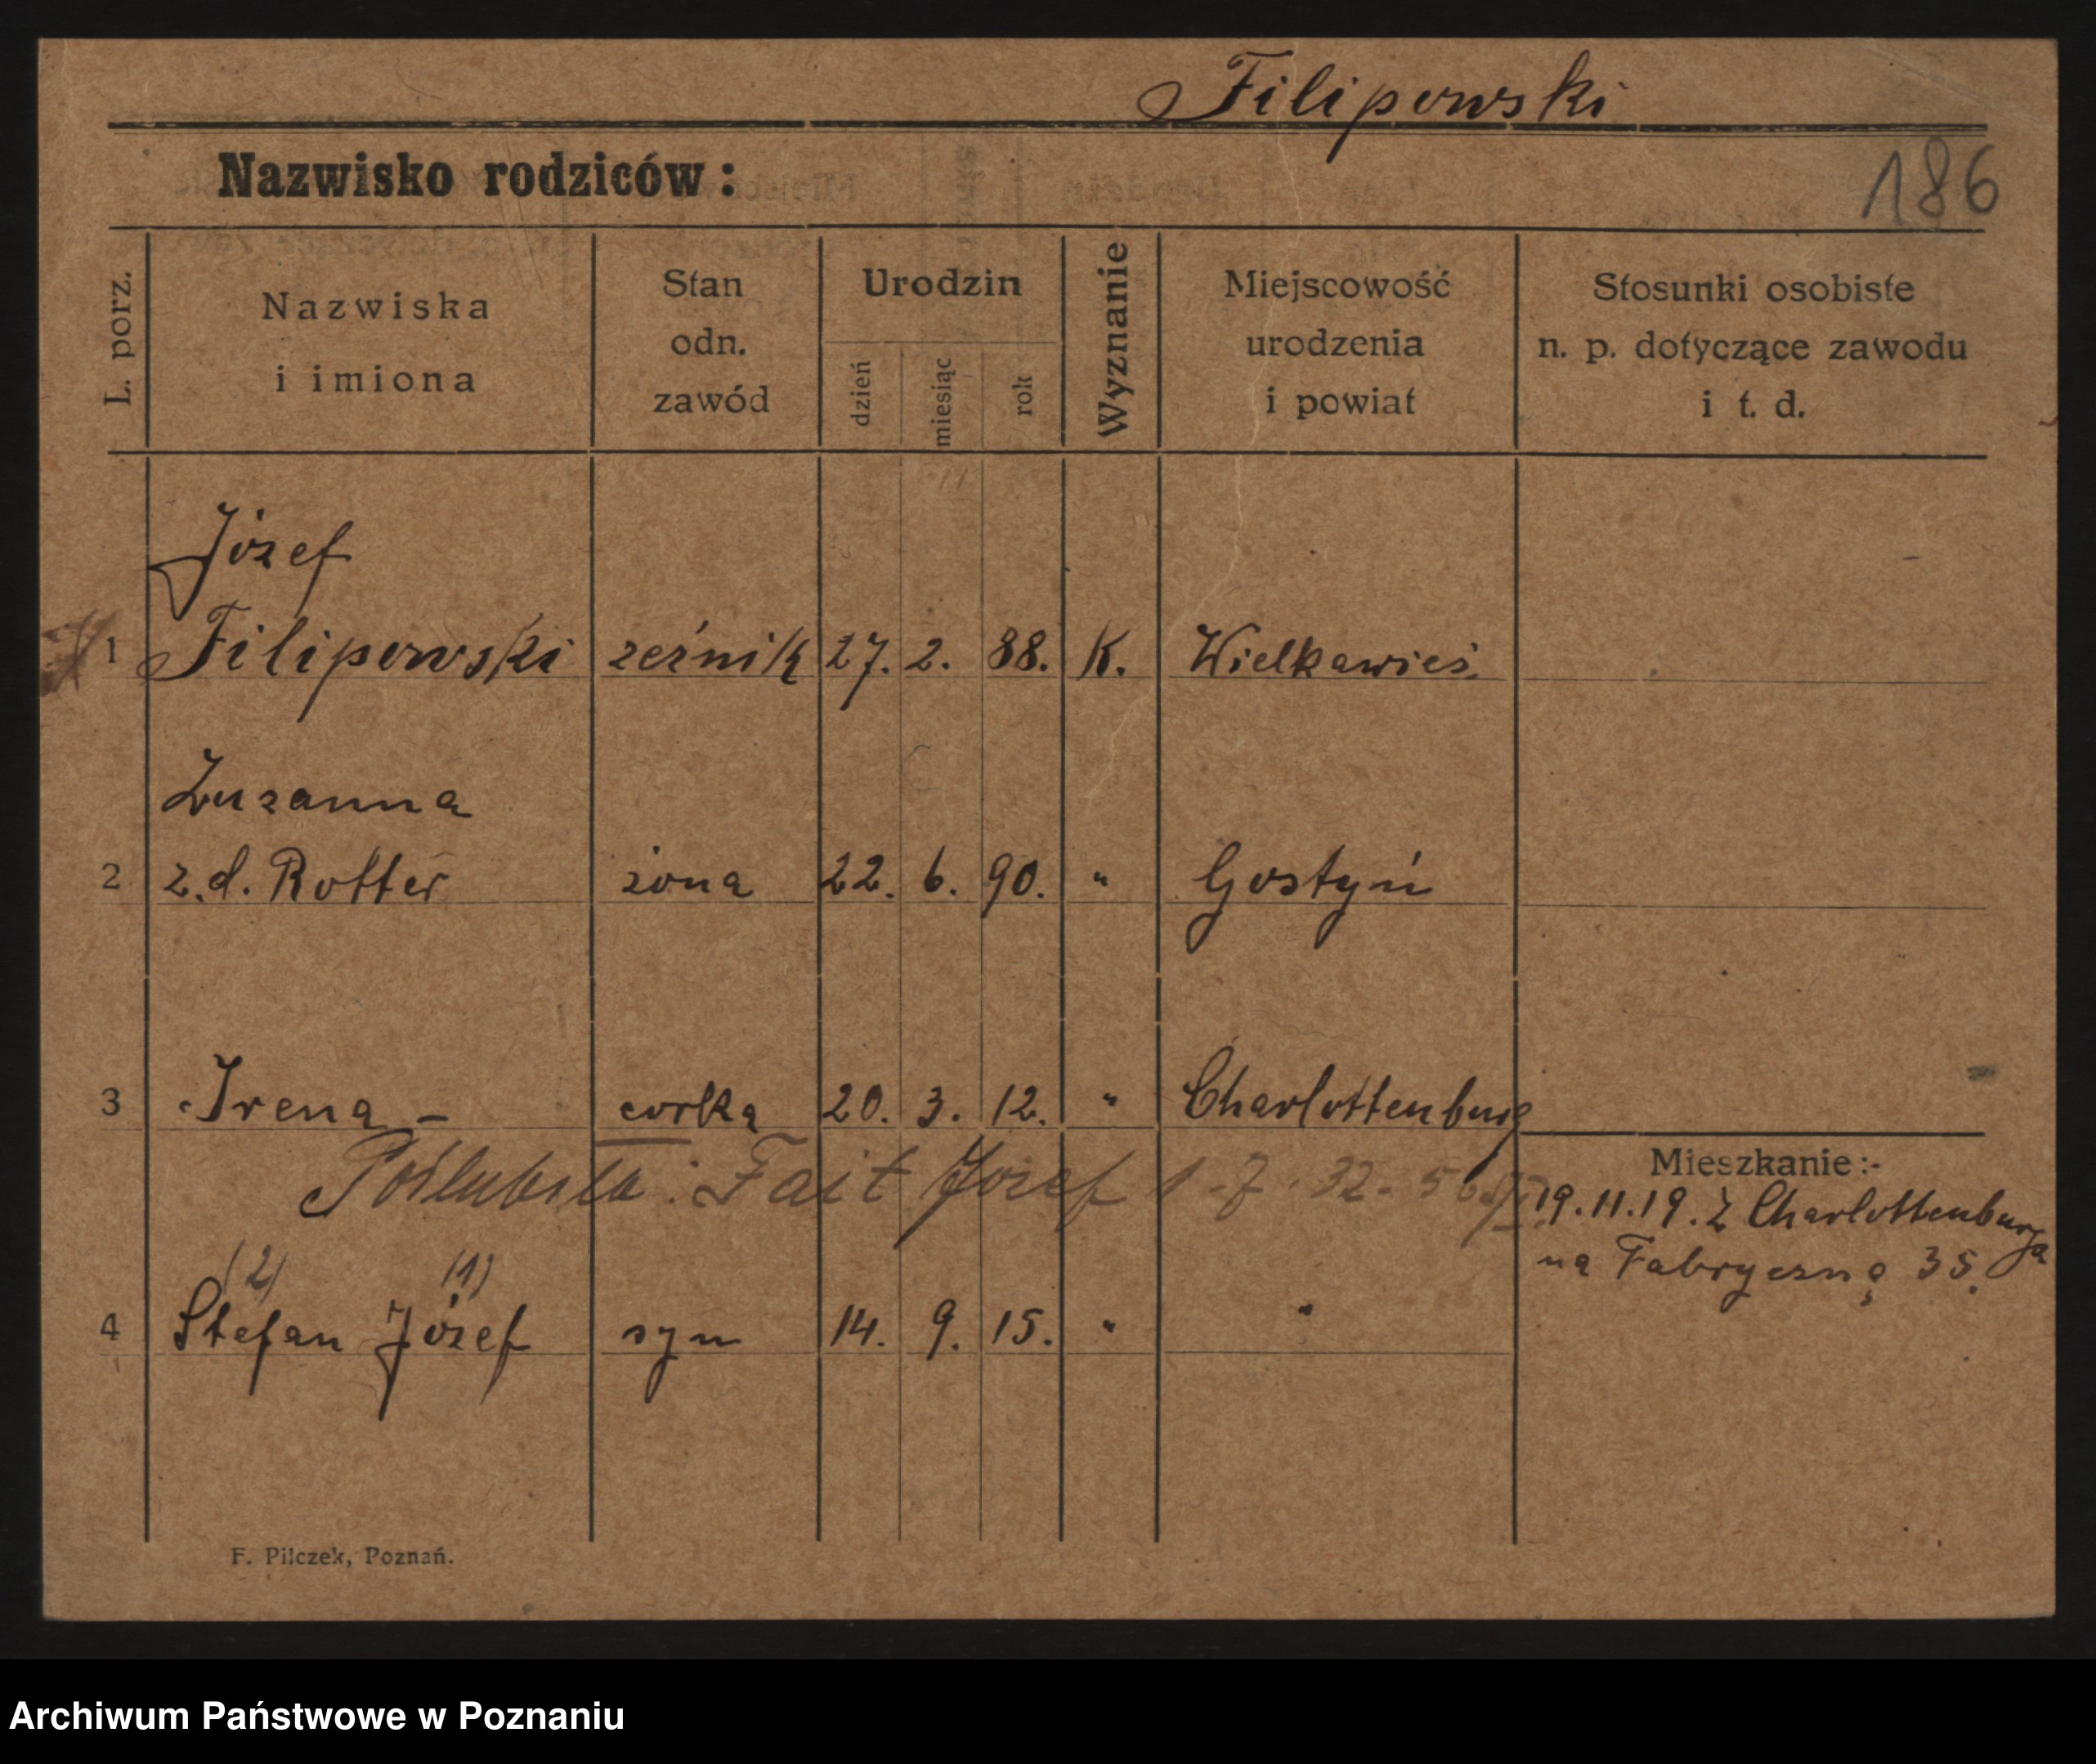 Filipowski
Nazwisko rodziców:
186
L. porz.
Nazwiska
i imiona
Stan
odn.
zawód
Urodzin
dzień
miesiąc
rok
Wyznanie
Miejscowość
urodzenia
i powiat
Stosunki osobiste
n. p. dotyczące zawodu
i t. d.
Józef
1 Filipowski rzeźnik 27. 2. 88. K. Wielkawieś
Zuzanna
2 z. d. Rotter żona 22. 6. 90. " Gostyń
3 Irena - corka 20. 3. 12. " Charlottenburg
Poślubiła: Fait Józef 1-7.32-
Mieszkanie:-
19.11.19. z Charlottenburga
na Fabryczną 35.
(2) (1)
4 Stefan Józef syn 14. 9. 15. " "
F. Pilczek, Poznań.
Archiwum Państwowe w Poznaniu